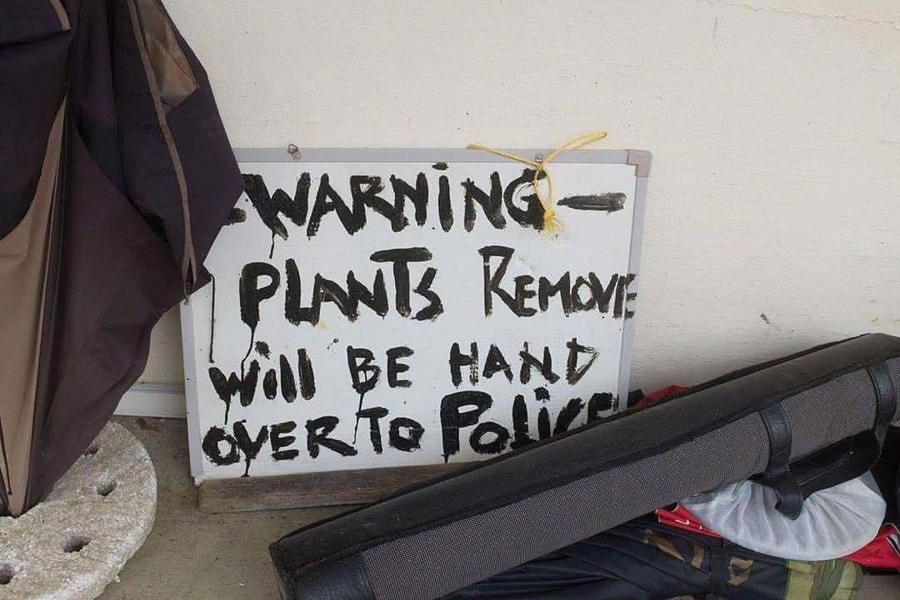 -WARNING-
PLANTS REMOVE
Will BE HAND
OVER TO POLiCE